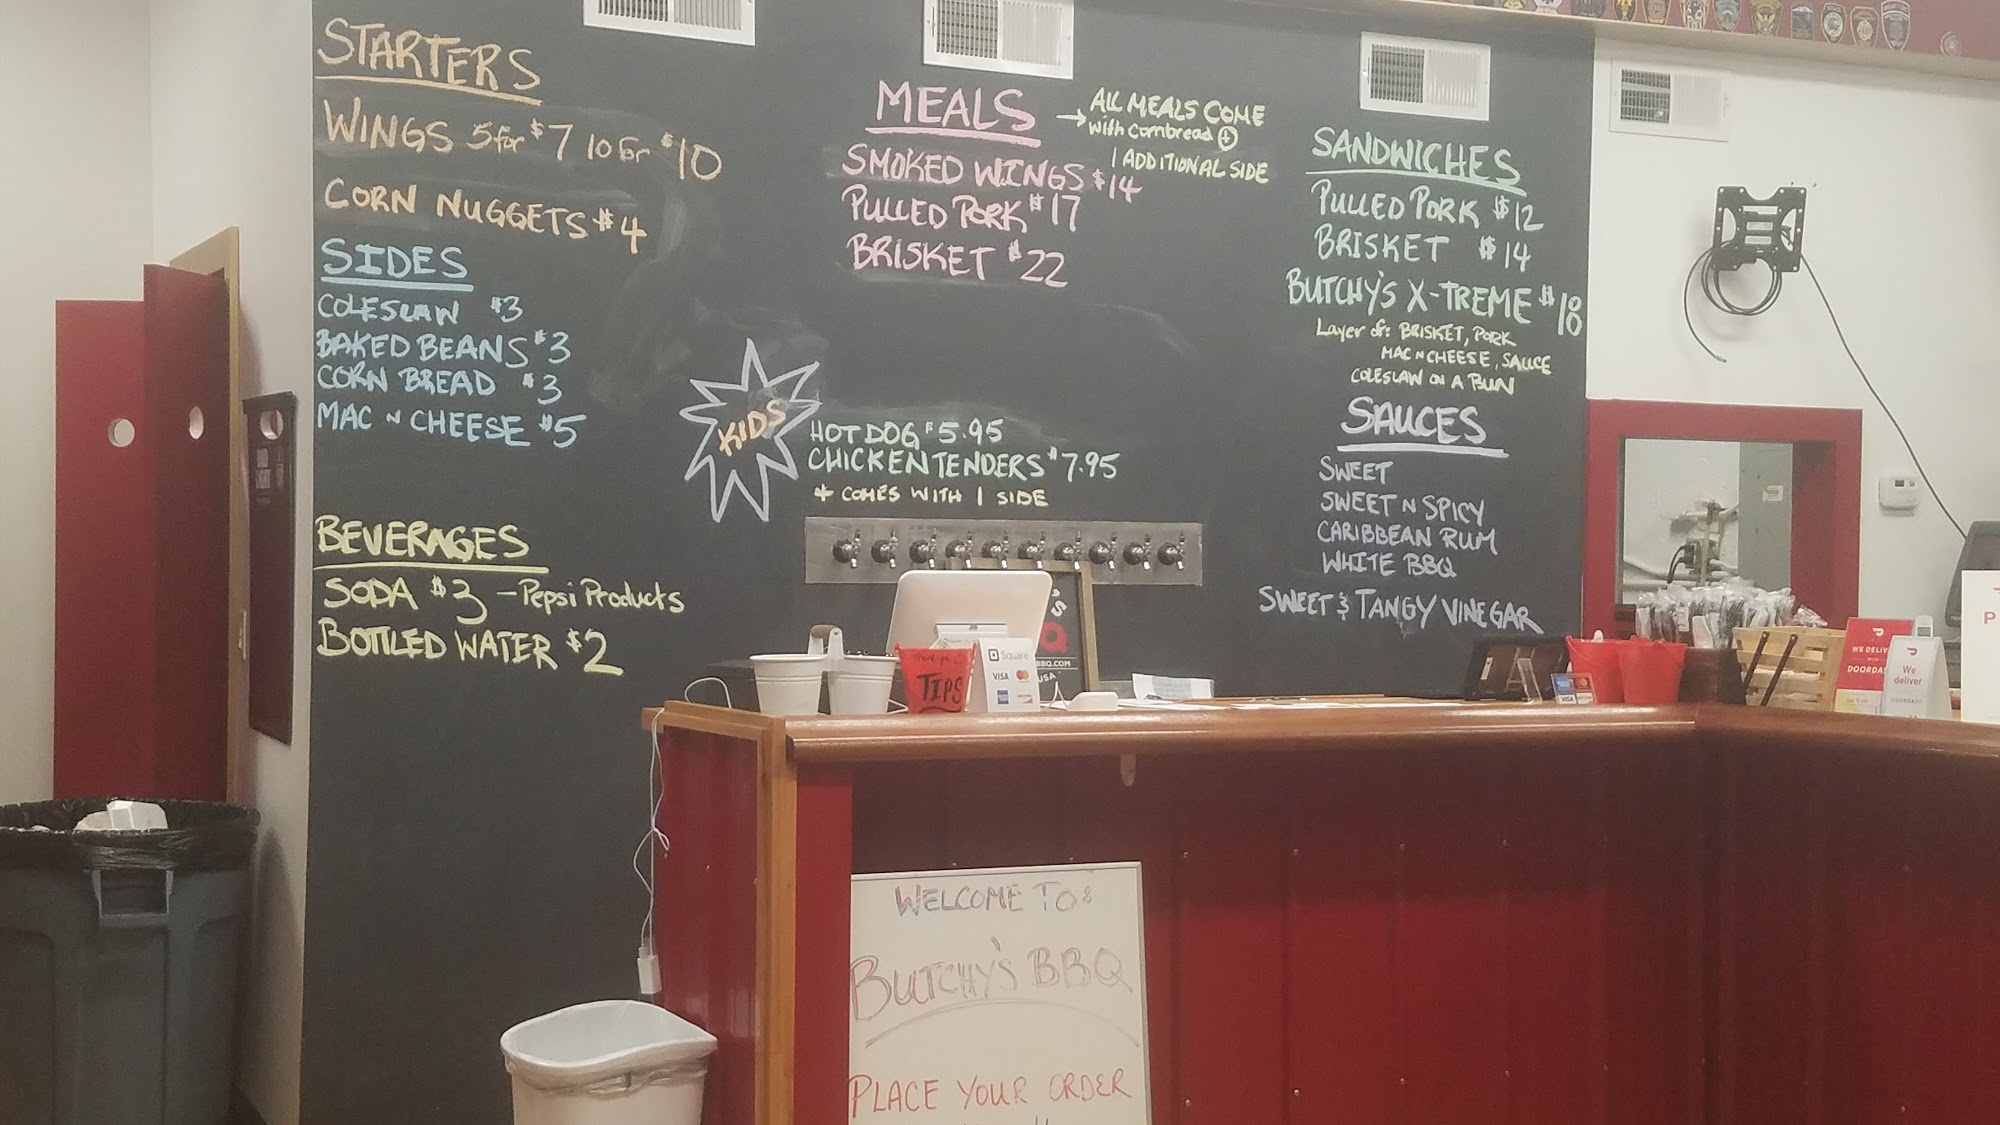 STARTERS
WINGS 5 for $7 10 for $10
CORN NUGGETS $4
SIDES
COLESLAW $3
BAKED BEANS $3
CORN BREAD $3
MAC N CHEESE $5
BEVERAGES
SODA $3 - Pepsi Products
BOTTLED WATER $2
MEALS → ALL MEALS COME
with Cornbread +
1 ADDITIONAL SIDE
SMOKED WINGS $14
PULLED PORK $17
BRISKET $22
KIDS
HOT DOG $5.95
CHICKEN TENDERS $7.95
+ COMES WITH 1 SIDE
SANDWICHES
PULLED PORK $12
BRISKET $14
BUTCHY'S X-TREME $18
Layer of: BRISKET, PORK
MAC N CHEESE, SAUCE
COLESLAW ON A BUN
SAUCES
SWEET
SWEET N SPICY
CARIBBEAN RUM
WHITE BBQ
SWEET & TANGY VINEGAR
TIPS
Square
VISA
BBQ.COM
USA
WE DELIV
DOORDA
We
deliver
DOORDASH
P
VISA
WELCOME TO:
BUTCHY'S BBQ
PLACE YOUR ORDER